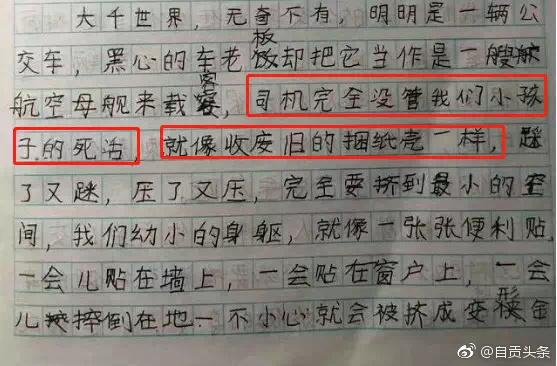 大千世界，无奇不有，明明是一辆公
交车，黑心的车老板却把它当作是一艘
航空母舰来载客，司机完全没管我们小孩
子的死活，就像收废旧的捆纸壳一样，踩
了又踩，压了又压，完全要挤到最小的空
间，我们幼小的身躯，就像一张张便利贴，
一会儿贴在墙上，一会贴在窗户上，一会
儿摔倒在地一不小心就会被挤成变形金
@自贡头条